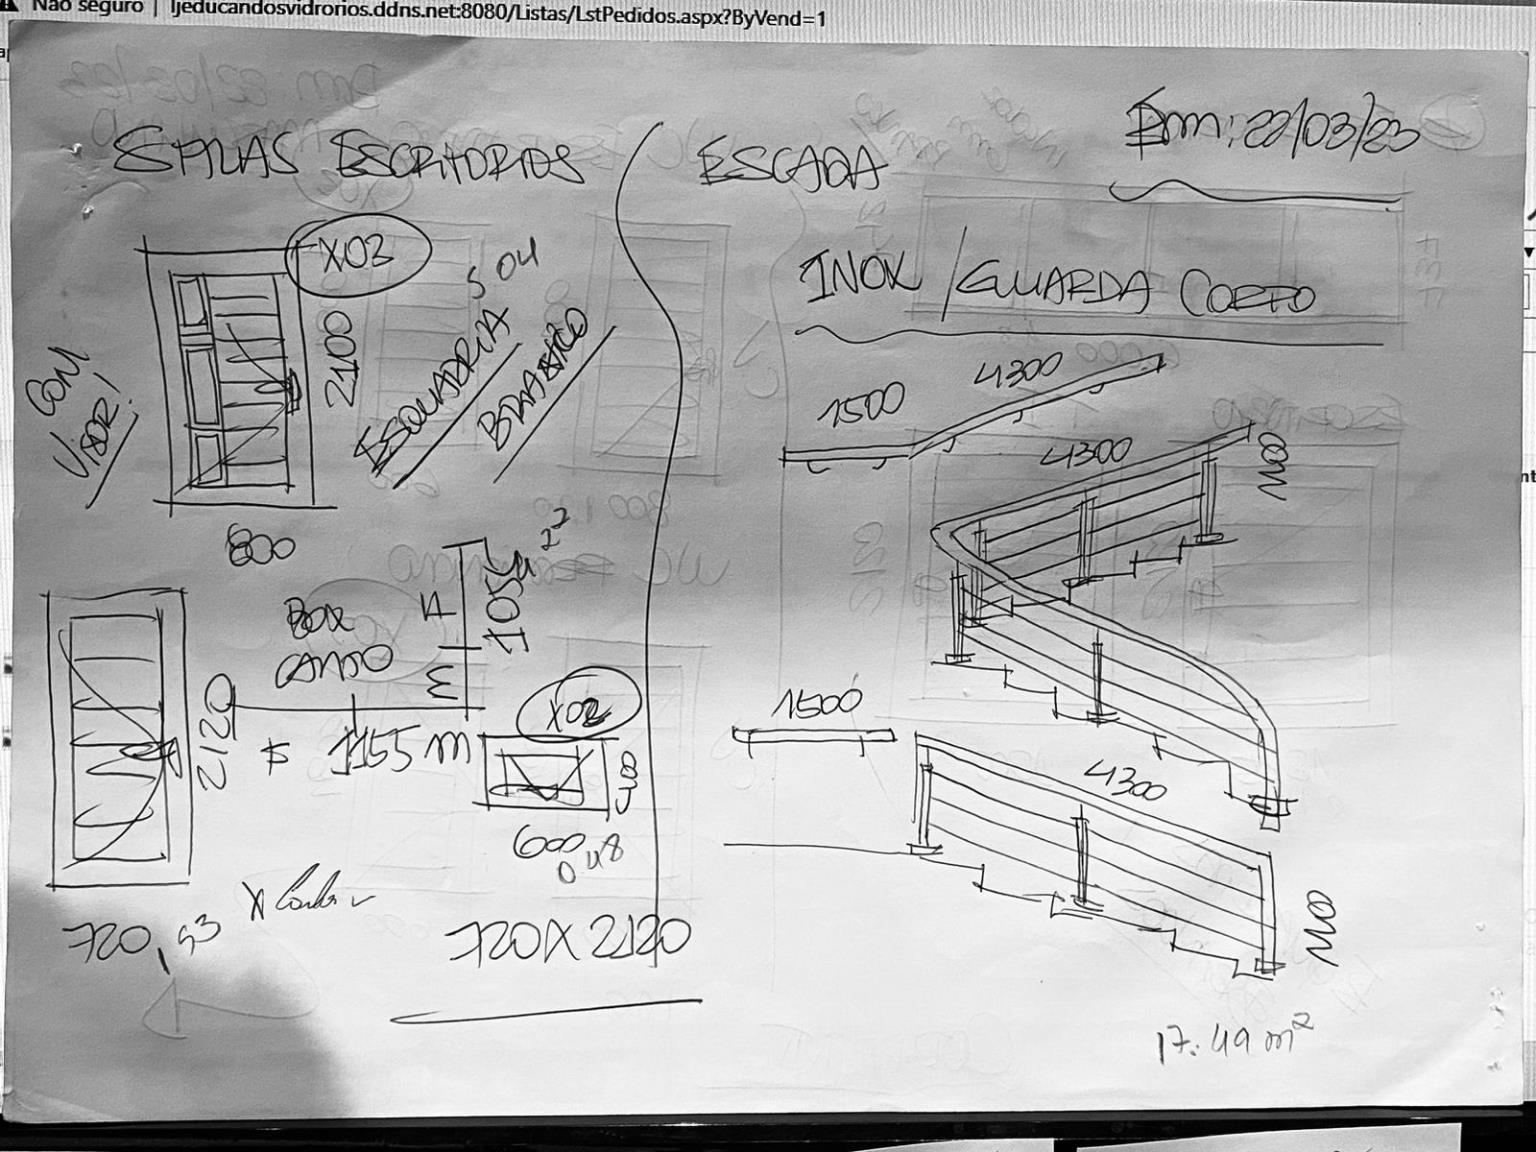 Não seguro | ljeducandosvidrorios.ddns.net:8080/Listas/LstPedidos.aspx?ByVend=1
Em: 22/03/23
SALAS ESCRITORIOS
X03
5 04
2100
COM
VISOR!
ESQUADRIA
BRANCO
800
BOX
CANTO
2120
1155 m
X02
400
600
0,48
720
720X2120
ESCADA
INOX / GUARDA CORPO
1500
4300
4300
1100
1500
4300
1100
17.49 m²